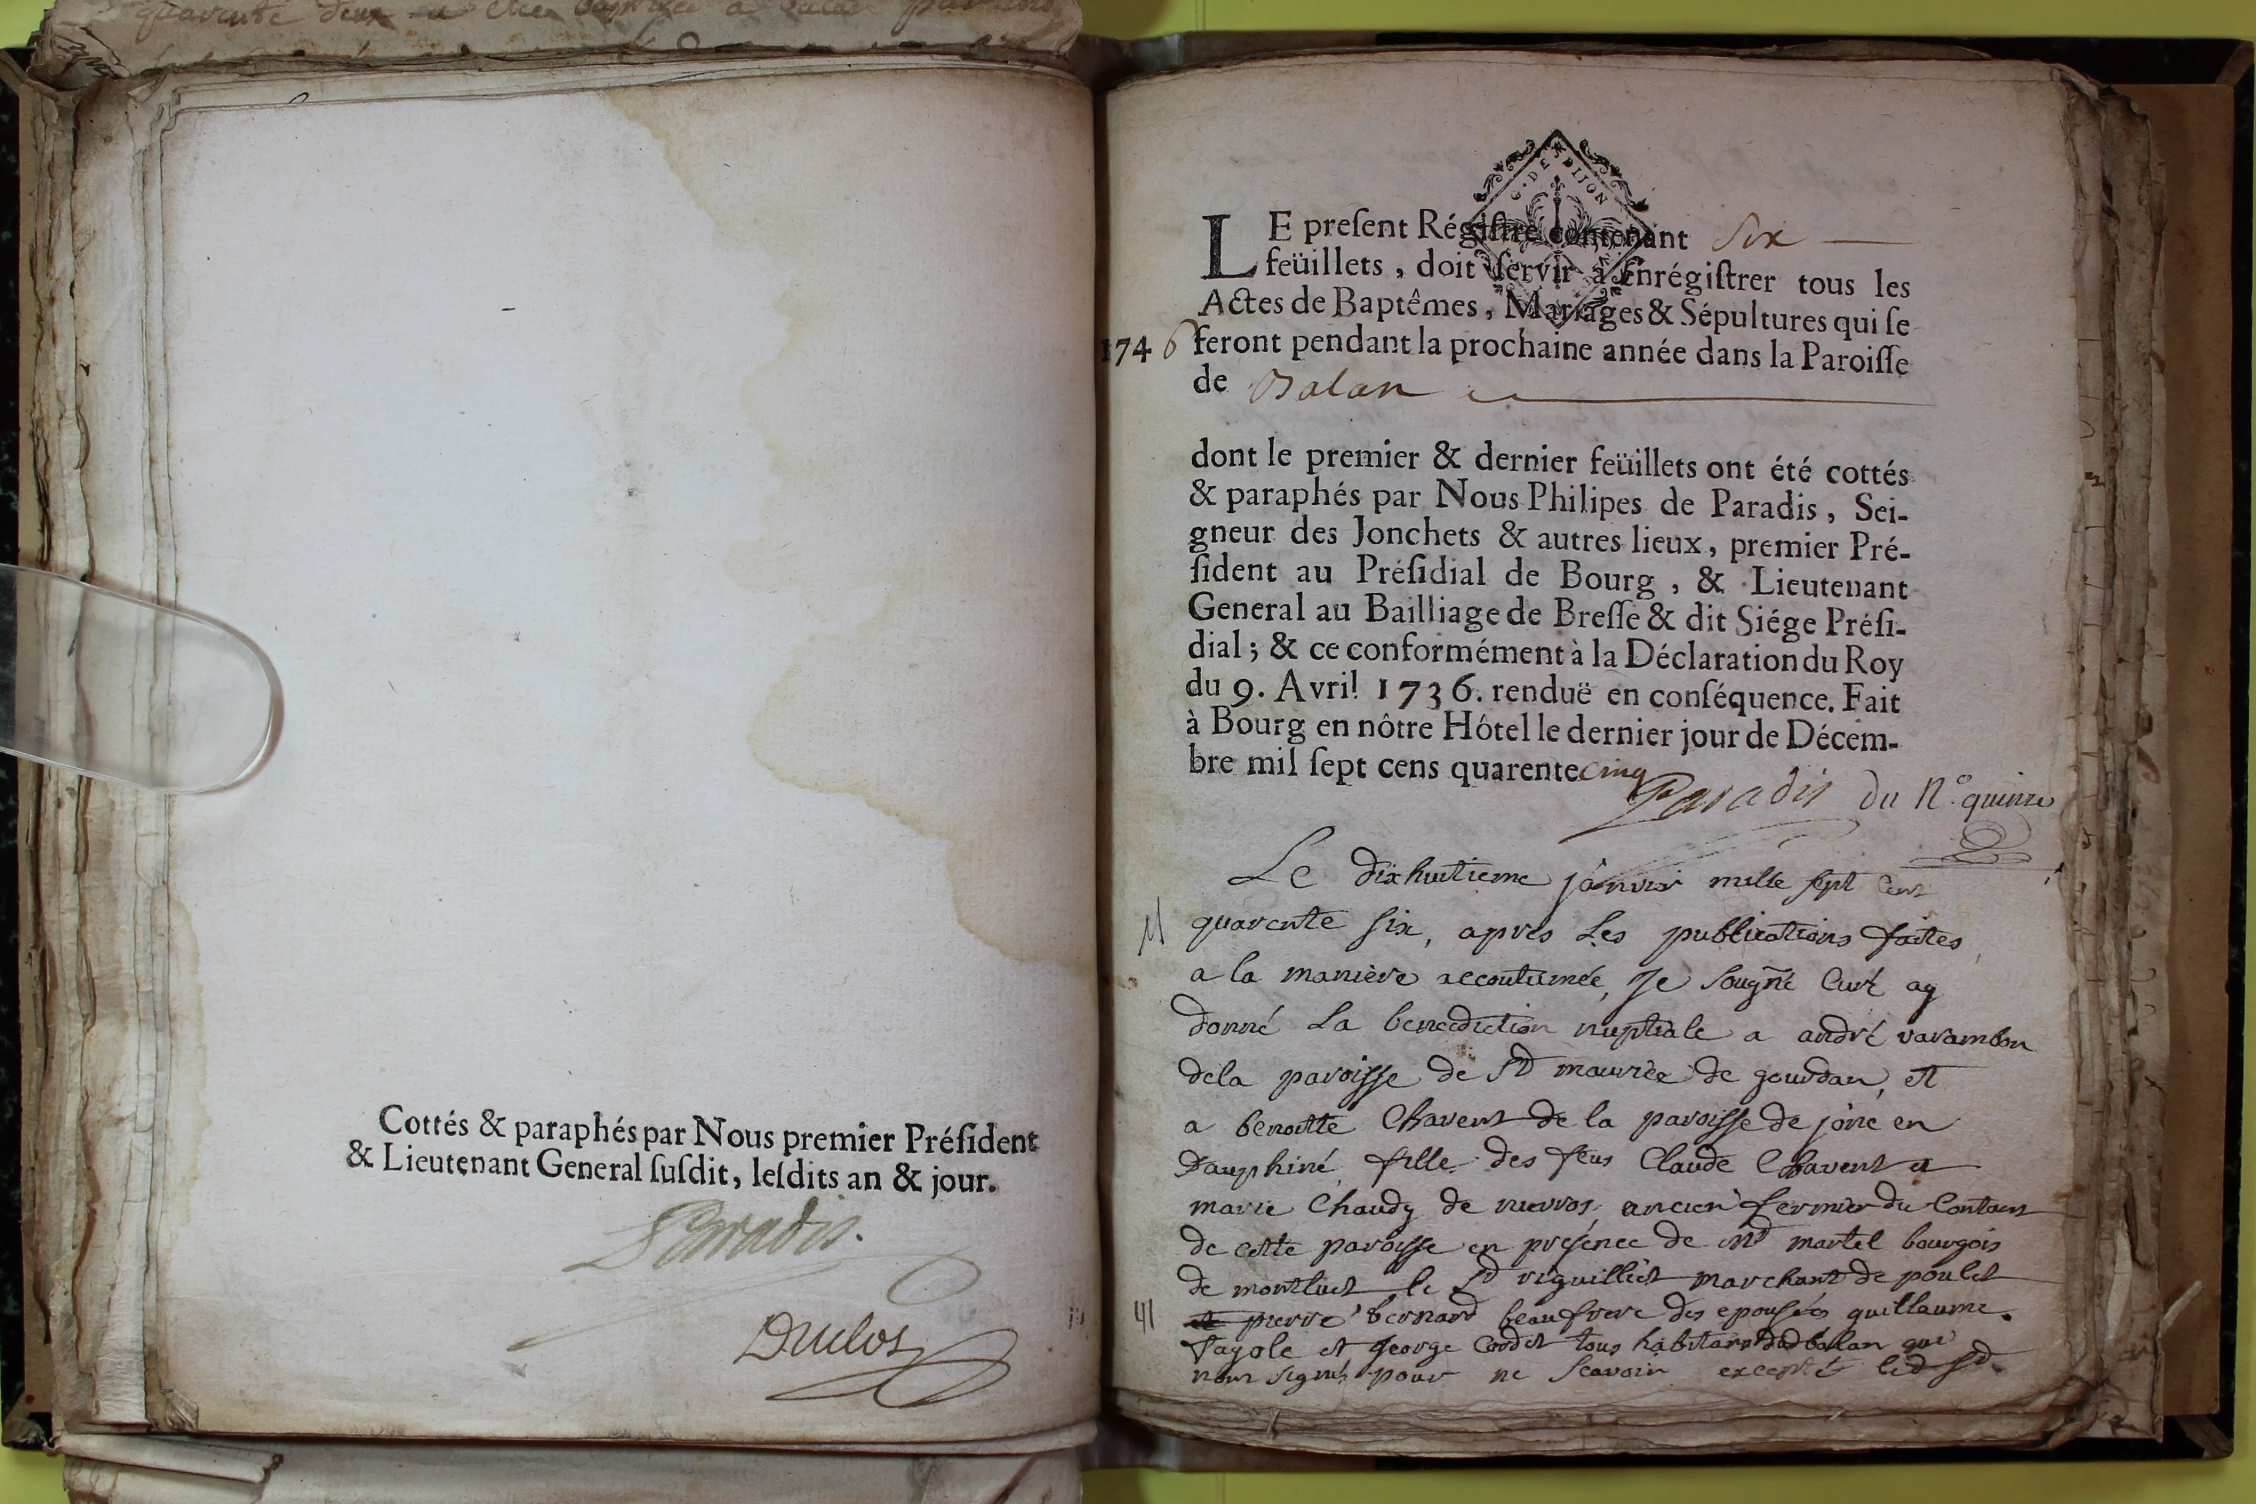 quarente deux
Cottés & paraphés par Nous premier Président
& Lieutenant General ſuſdit, leſdits an & jour.
Paradis.
Duclos
G. DE DIJON
LE preſent Régiſtre contenant Six
feüillets, doit ſervir à enrégiſtrer tous les
Actes de Baptêmes, Mariages & Sépultures qui ſe
1746 feront pendant la prochaine année dans la Paroiſſe
de Balan
dont le premier & dernier feüillets ont été cottés
& paraphés par Nous Philipes de Paradis, Sei-
gneur des Jonchets & autres lieux, premier Pré-
ſident au Préſidial de Bourg, & Lieutenant
General au Bailliage de Breſſe & dit Siége Préſi-
dial; & ce conformément à la Déclaration du Roy
du 9. Avril 1736. renduë en conſéquence. Fait
à Bourg en nôtre Hôtel le dernier jour de Décem-
bre mil ſept cens quarente cinq
Paradis du N.o quinze
Le dixhuitieme janvier mille sept cent
M quarente six, apres Les publications faites
a la maniére accoutumée, Je sougné Curé ay
donné La benediction nuptiale a andré varambon
dela paroisse de St maurice de gourdan, et
a benoitte Chavent de la paroisse de jone en
Dauphiné, fille des feus Claude Chavent et
marie Chaudy de ancien fermier du
de cette paroisse en présence de Mr martel bourgois
de montluet le Sr viguillet marchant de poulet
pierre bernard beaufrere des epousées guillaume
fagole et george Cordet tous habitans dud balan que
nont signés pour ne scavoir excepté led Sr